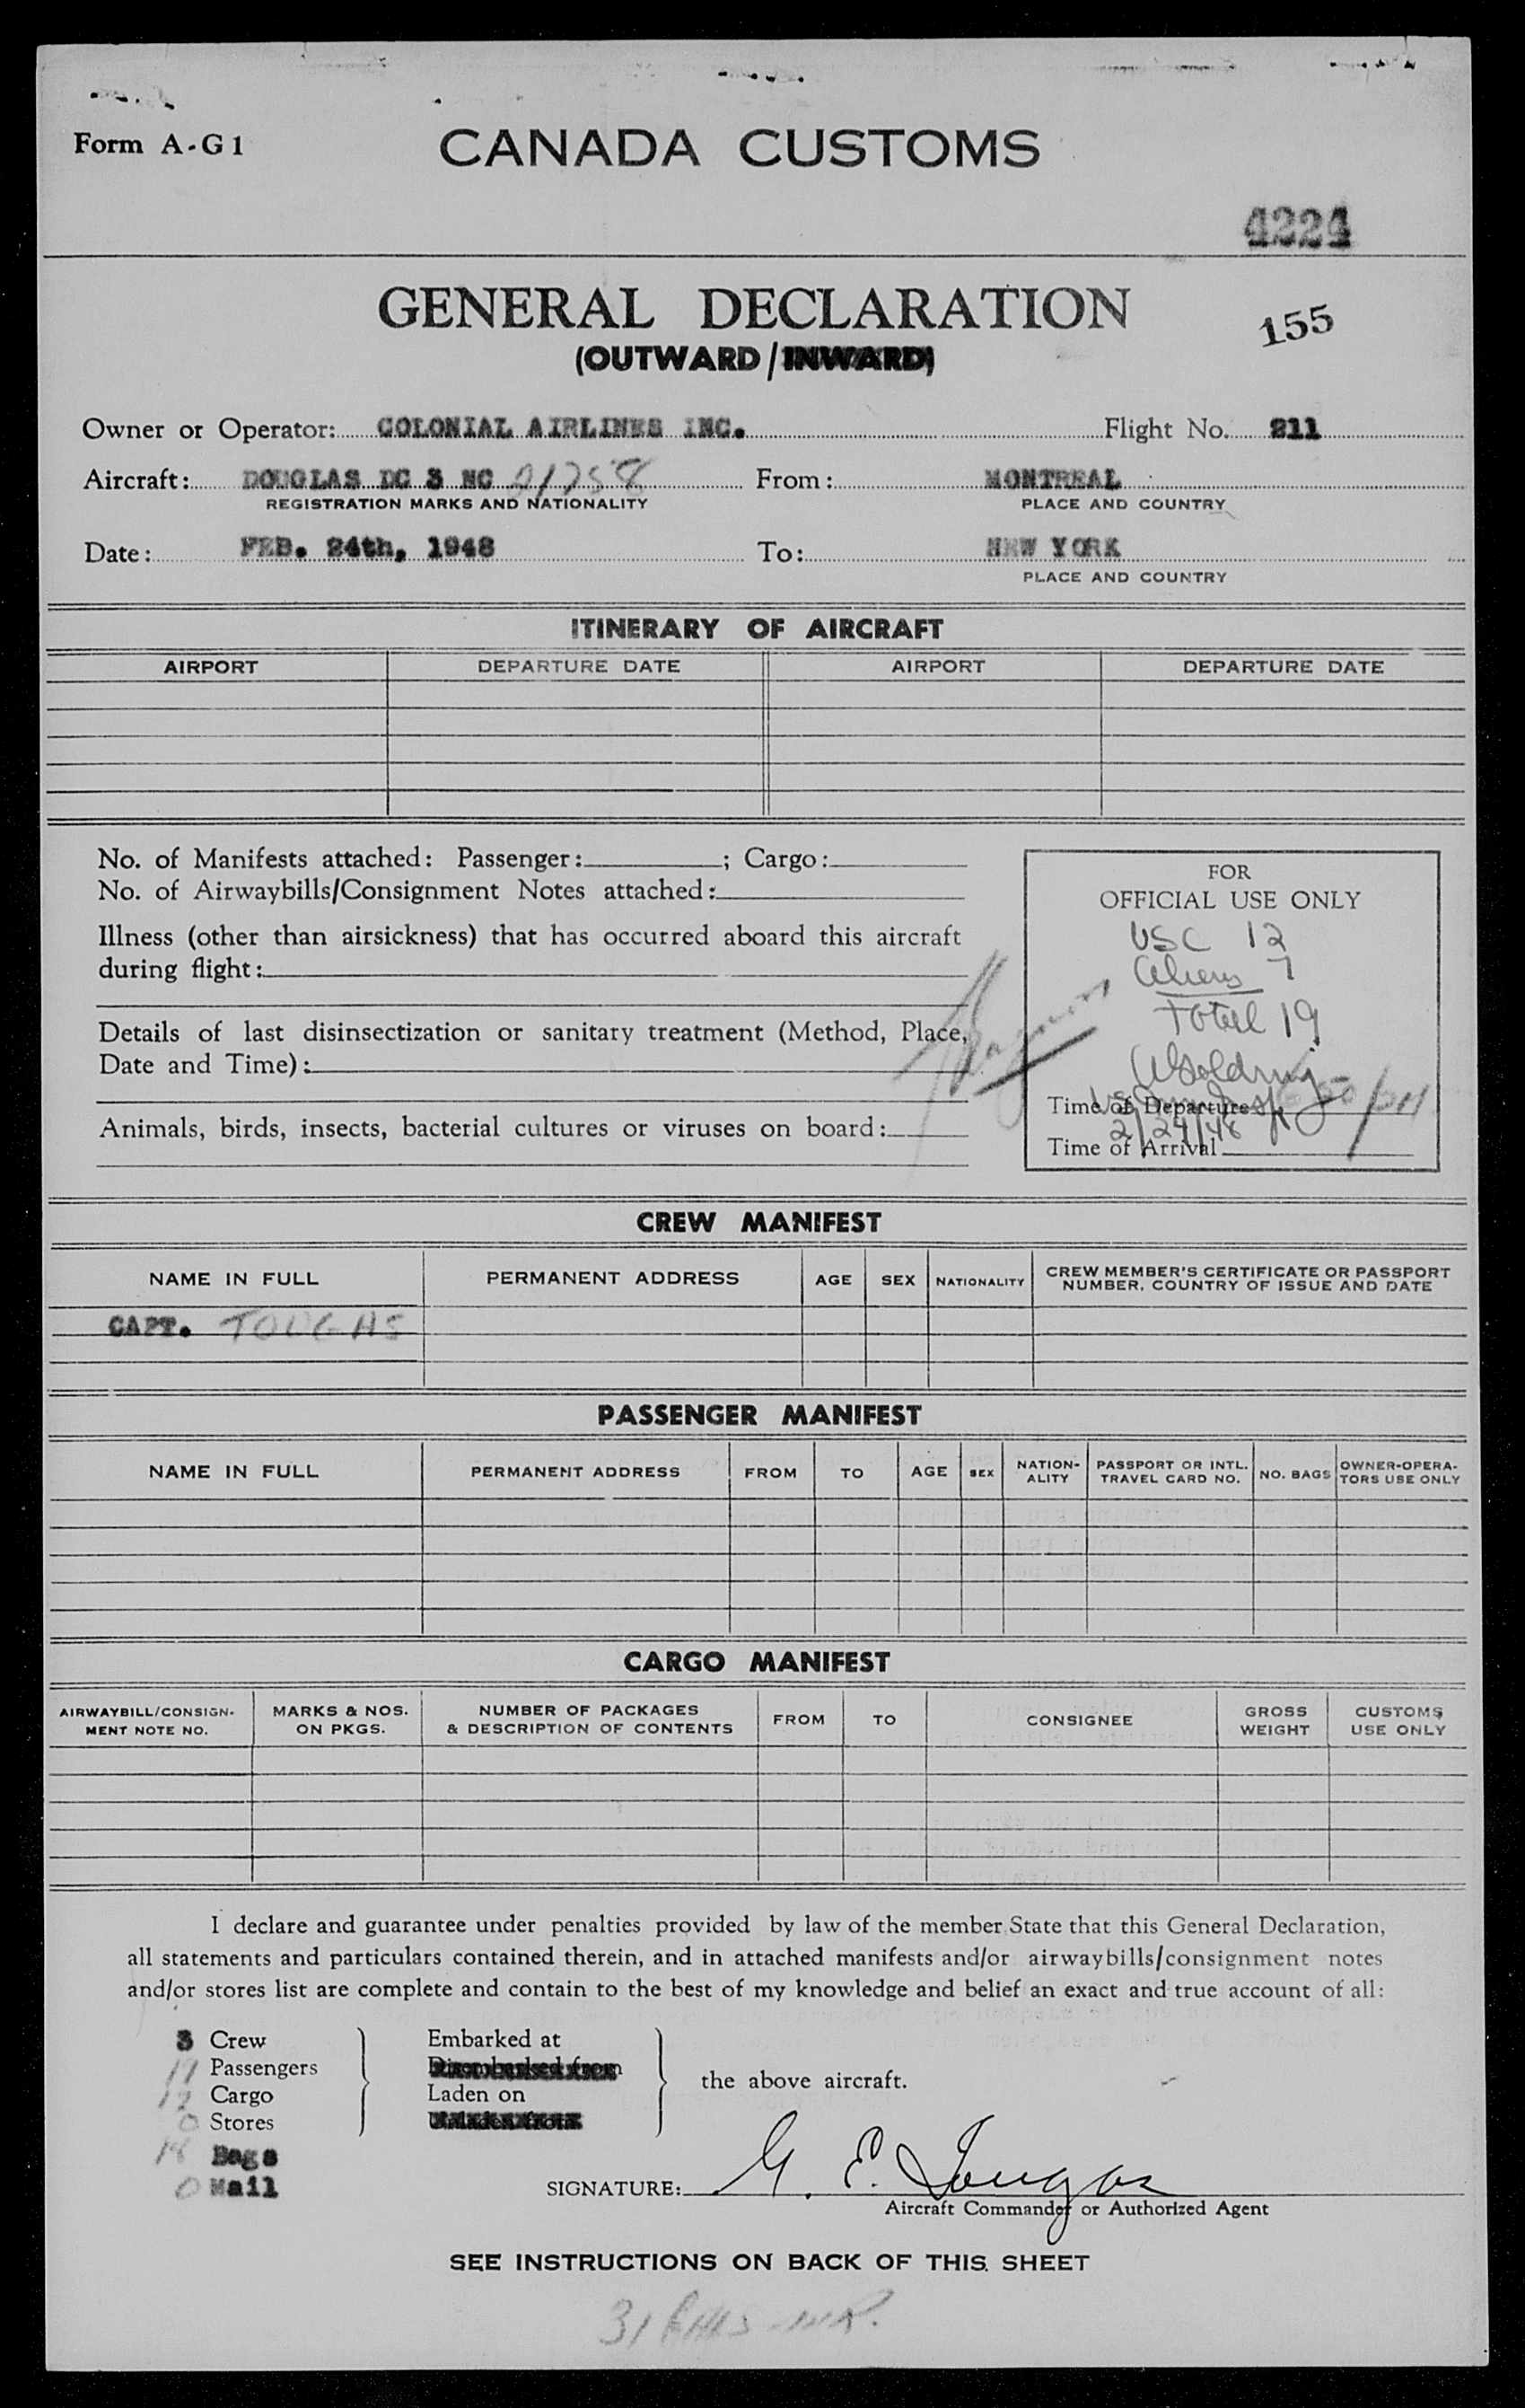 Form A-G1
CANADA CUSTOMS
4224
GENERAL DECLARATION
155
(OUTWARD/INWARD)
Owner or Operator: COLONIAL AIRLINES INC. Flight No. 211
Aircraft: DOUGLAS DC 3 NC 21758 From: MONTREAL
REGISTRATION MARKS AND NATIONALITY PLACE AND COUNTRY
Date: FEB. 24th, 1948 To: NEW YORK
PLACE AND COUNTRY
ITINERARY OF AIRCRAFT
AIRPORT DEPARTURE DATE AIRPORT DEPARTURE DATE
No. of Manifests attached: Passenger: ; Cargo:
No. of Airwaybills/Consignment Notes attached:
Illness (other than airsickness) that has occurred aboard this aircraft
during flight:
Details of last disinsectization or sanitary treatment (Method, Place,
Date and Time):
Animals, birds, insects, bacterial cultures or viruses on board:
FOR
OFFICIAL USE ONLY
USC 12
Aliens 7
Total 19
Time of Departure
2/24/48
Time of Arrival
CREW MANIFEST
NAME IN FULL PERMANENT ADDRESS AGE SEX NATIONALITY CREW MEMBER'S CERTIFICATE OR PASSPORT
NUMBER, COUNTRY OF ISSUE AND DATE
CAPT. TOUGAS
PASSENGER MANIFEST
NAME IN FULL PERMANENT ADDRESS FROM TO AGE SEX NATION- PASSPORT OR INTL. NO. BAGS OWNER-OPERA-
ALITY TRAVEL CARD NO. TORS USE ONLY
CARGO MANIFEST
AIRWAYBILL/CONSIGN- MARKS & NOS. NUMBER OF PACKAGES FROM TO CONSIGNEE GROSS CUSTOMS
MENT NOTE NO. ON PKGS. & DESCRIPTION OF CONTENTS WEIGHT USE ONLY
I declare and guarantee under penalties provided by law of the member State that this General Declaration,
all statements and particulars contained therein, and in attached manifests and/or airwaybills/consignment notes
and/or stores list are complete and contain to the best of my knowledge and belief an exact and true account of all:
3 Crew Embarked at
Passengers Disembarked from
Cargo Laden on
the above aircraft.
0 Stores Unladen from
Bags
0 Mail
SIGNATURE: G. E. Tougas
Aircraft Commander or Authorized Agent
SEE INSTRUCTIONS ON BACK OF THIS SHEET